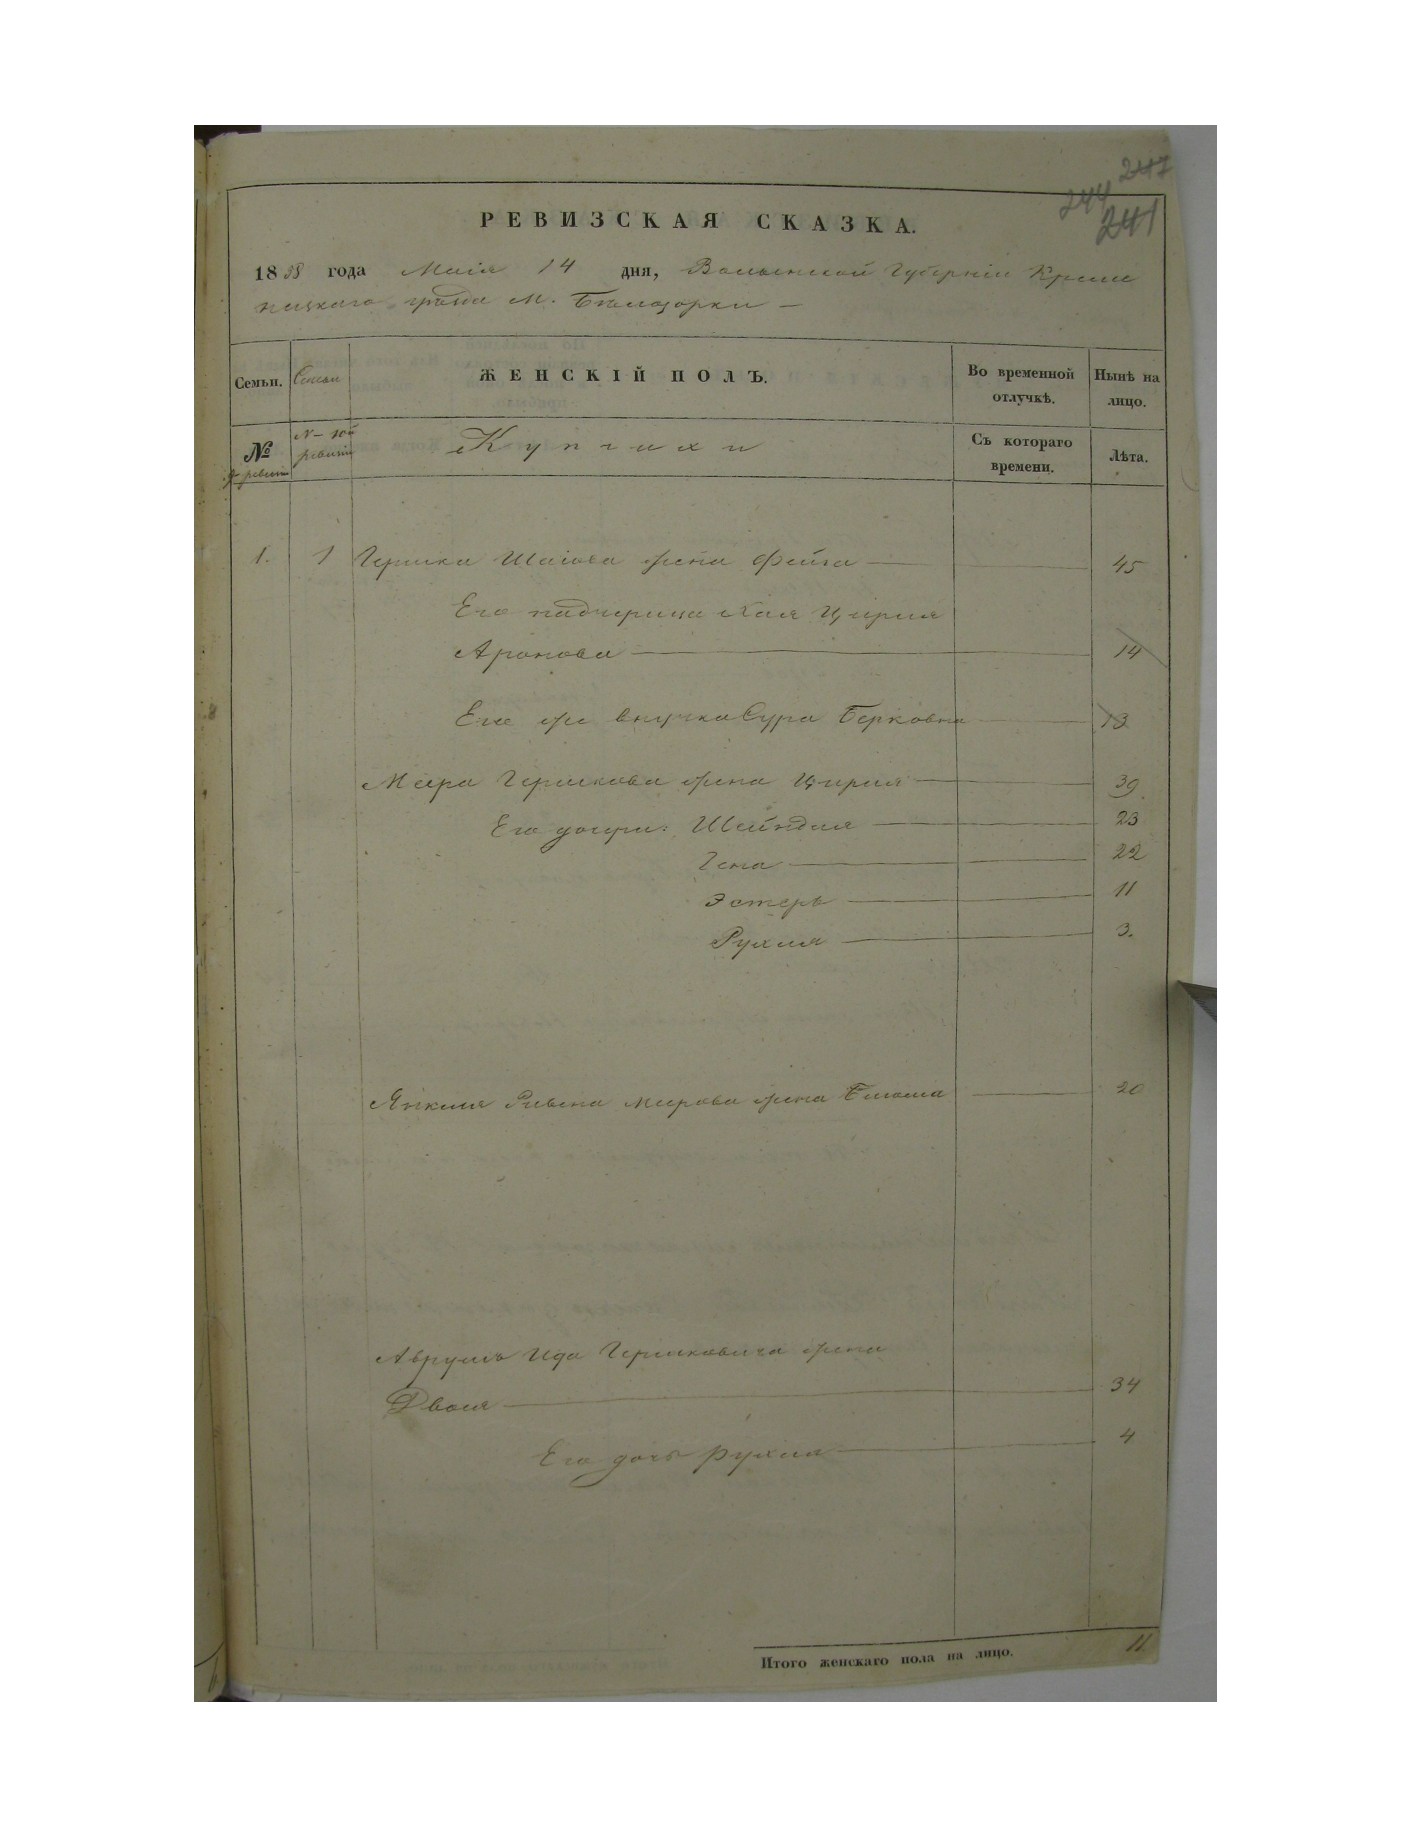 247
244
241
РЕВИЗСКАЯ СКАЗКА.
1858 года Маія 14 дня, Волынской Губерніи Креме
нецкаго уезда м. Белозорки —
Семьи. Семьи ЖЕНСКІЙ ПОЛЪ. Во временной отлучкѣ. Нынѣ на лицо.
№ ревизіи № 10й ревизіи Купчихи Съ котораго времени. Лѣта.
1. 1 Гершка Шаіова жена Фейга — 45
Его падчерица Хая Цирля
Аронова — 14
Его же внучка Сура Берковна — 13
Меера Гершкова жена Цирля — 39
Его дочери: Шейндля — 23
Гена — 22
Эстеръ — 11
Рухля — 3.
Янкеля Мерова жена — 20
Аврумъ Гершковича жена
Двося — 34
Его дочь Рухля — 4
Итого женскаго пола на лицо. 11